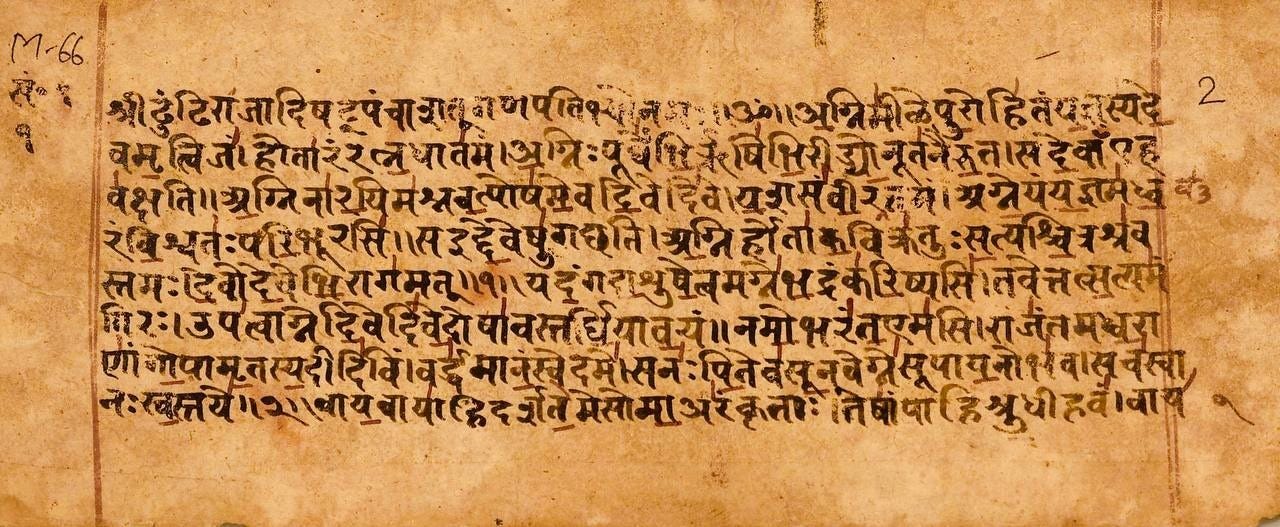 M-66
सं॰ १
१
2
श्री ढुंढिराजादिषट्पंचाशत् गणपतिभ्यो नमः॥ॐ॥अ॒ग्निमी॑ळेपु॒रोहि॑तंय॒ज्ञस्य॑दे
वमृ॒त्विज॑। होता॑रंरत्न॒धात॑मं।अ॒ग्निःपूर्वे॑भि॒र्ऋषि॑भि॒रीड्यो॒नूत॑नैरु॒त।सदे॒वाँएह
व॑क्षति॥अ॒ग्निना॑र॒यिम॑श्नव॒त्पोष॑मे॒वदि॒वेदि॑वे।य॒शसं॑वी॒रव॑त्तमं।अग्ने॒यंय॒ज्ञम॑ध्व
रंवि॒श्वतः॑परि॒भूरसि॑॥सइद्दे॒वेषु॑गछति।अ॒ग्निर्होता॑क॒विक्र॑तुःस॒त्यश्चि॒त्रश्र॑व
स्तमः।दे॒वोदे॒वेभि॒राग॑मत्॥१॥यदं॒गदा॒शुषे॒त्वमग्ने॑भ॒द्रंक॑रि॒ष्यसि॑।तवेत्तत्स॒त्यमं॑
गिरः।उप॑त्वाग्नेदि॒वेदि॑वे॒दोषा॑वस्तर्द्धि॒याव॒यं॥नमो॒भरं॑त॒एम॑सि।राजं॑तमध्व॒रा
णां॑गो॒पामृ॒तस्य॒दीदि॑विं।वर्द्ध॑मानं॒स्वेदमे॑।सनः॑पि॒तेव॑सू॒नवेग्ने॑सूपाय॒नोभ॑व।सच॑स्वा
नःस्व॒स्तये॑॥२॥वाय॒वाया॑हिदर्शते॒मेसोमा॒अरं॑कृताः।तेषां॑पाहिश्रु॒धीहवं॑।वाय